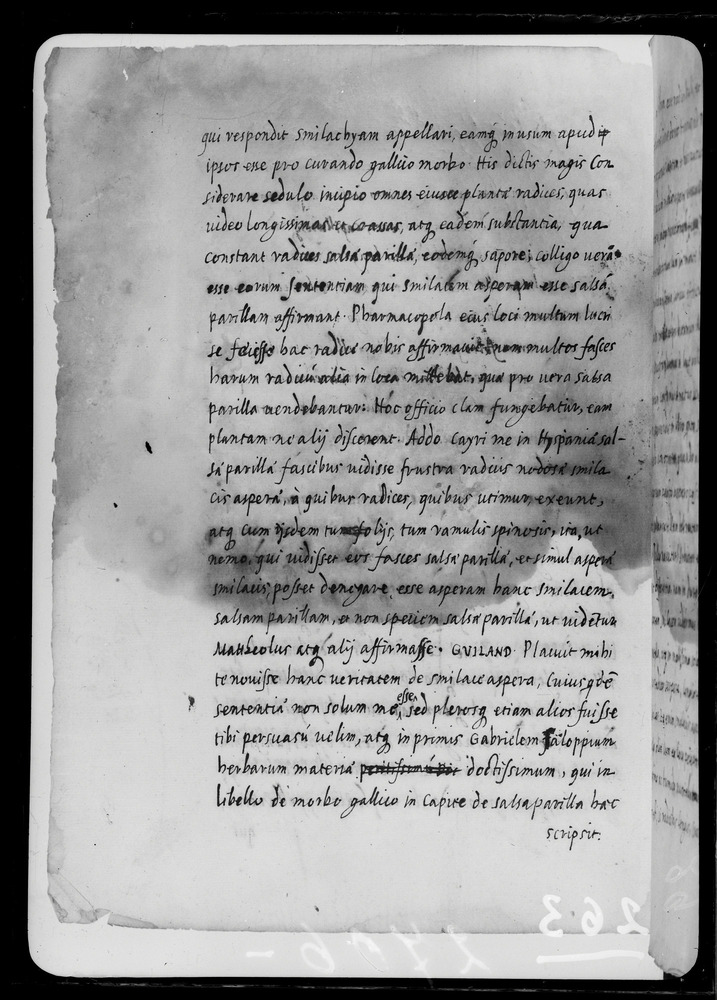 qui respondit Smilachyam appellari, eamq́ in usum apud
ipsos esse pro curando gallico morbo. His dictis magis Con
siderare sedulo incipio omnes eiusce plantæ radices, quas
video longissimas et crassas, atq́ eadem substantia, qua
constant radices salsa parilla, eodemq́ sapore; colligo verã
esse eorum sententiam qui Smilacem asperam esse salsã
parillam affirmant. Pharmacopola eius loci multum lucri
se fecisse hac radice nobis affirmavit, nam multos fasces
harum radicũ alia in loca mittebat, quæ pro vera salsa
parilla vendebantur: Hoc officio clam fungebatur, eam
plantam ne alij discerent. Addo Cayri me in Hyspaniæ sal-
sæ parillæ fascibus vidisse frustra radicis nodosæ smila
cis asperæ, à quibus radices, quibus utimur, exeunt,
atq́ cum ijsdem tum folijs, tum ramulis spinosis, ita, ut
nemo, qui vidisset eos fasces salsæ parillæ, et simul asperã
smilacis, posset denegare, esse asperam hanc Smilacem,
salsam parillam, et non speciem salsæ parillæ, ut videtur
Mattheolus atq́ alij affirmasse. GUILAND. Placuit mihi
te novisse hanc veritatem de smilace aspera, Cuius
sententiæ non solum me esse, sed plerosq́ etiam alios fuisse
tibi persuasũ velim, atq́ in primis Gabrielem Faloppium
herbarum materia doctissimum, qui in
libello de morbo gallico in Capite de salsaparilla hæc
scripsit.
263